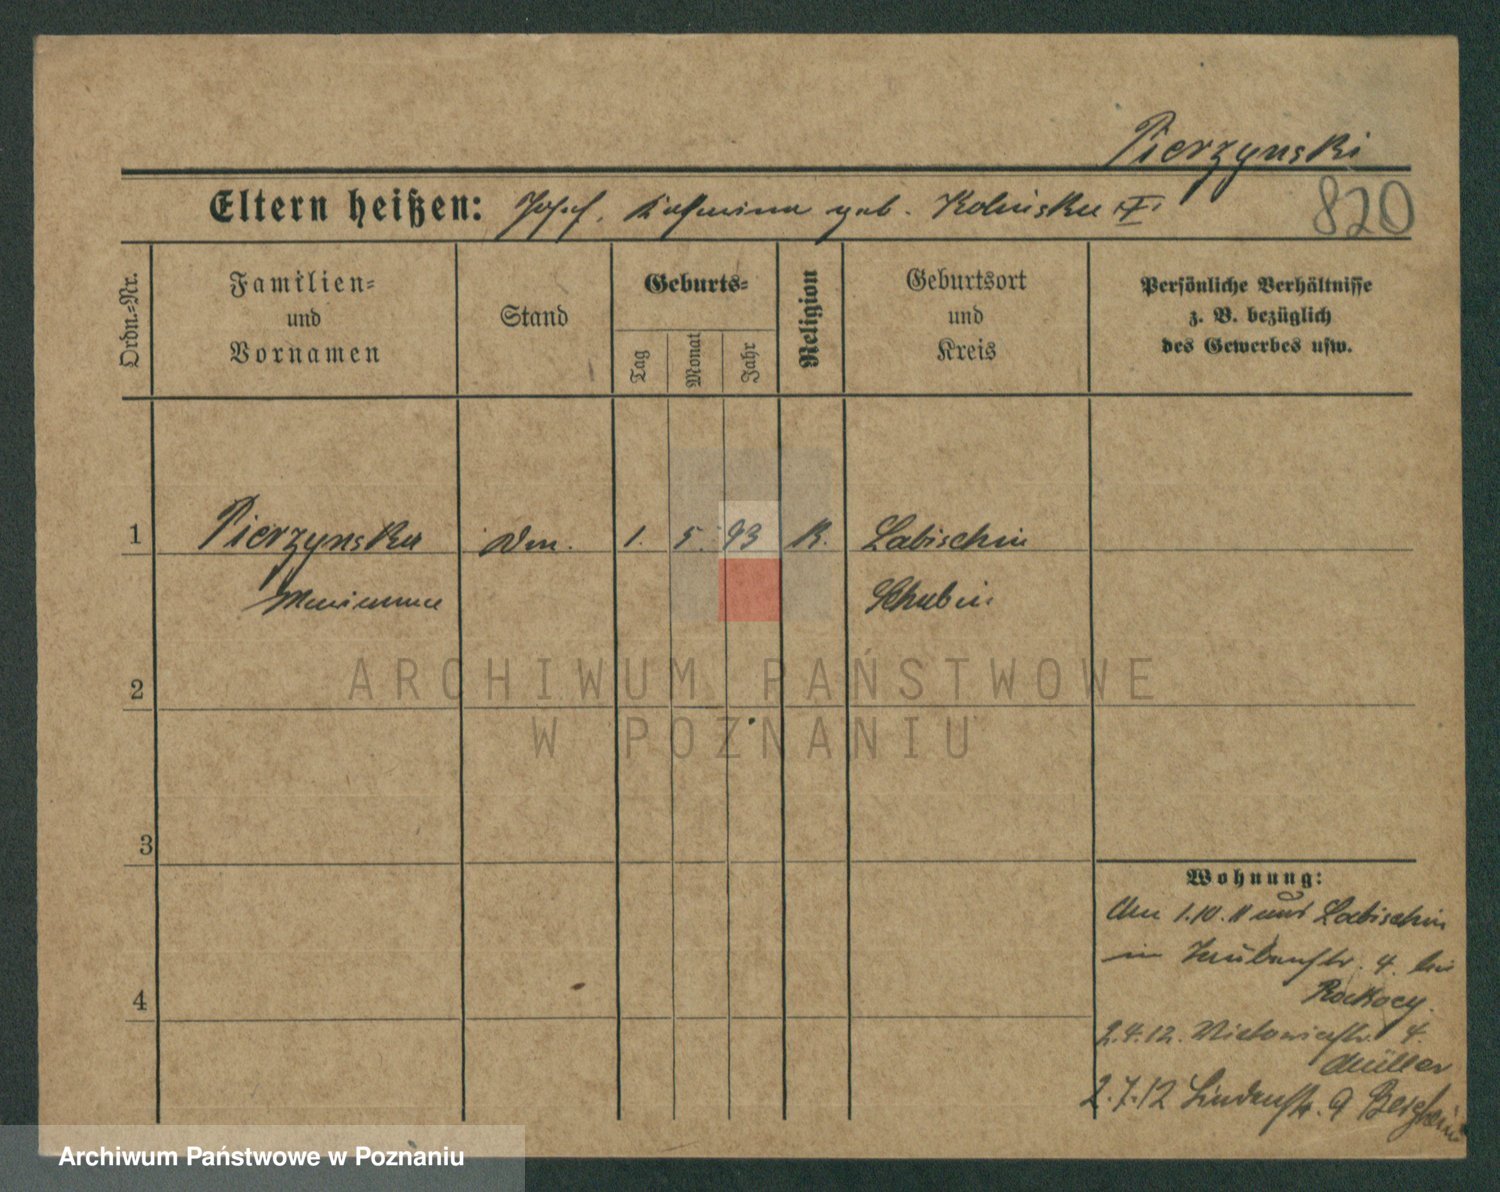 Pierzynski
Eltern heißen: Josef, geb. Kolinska
820
Ordn.-Nr.
Familien-
und
Vornamen
Stand
Geburts-
Tag
Monat
Jahr
Religion
Geburtsort
und
Kreis
Persönliche Verhältnisse
z. B. bezüglich
des Gewerbes usw.
1 Pierzynska 1. 5. 93 K. Labischin
Marianna Schubin
ARCHIWUM PAŃSTWOWE
W POZNANIU
2
3
4
Wohnung:
Am 1.10.11 aus Labischin
in 4. bei
2.4.12. Victoriastr. 4.
Müller
2.7.12 Lindenstr. 9
Archiwum Państwowe w Poznaniu